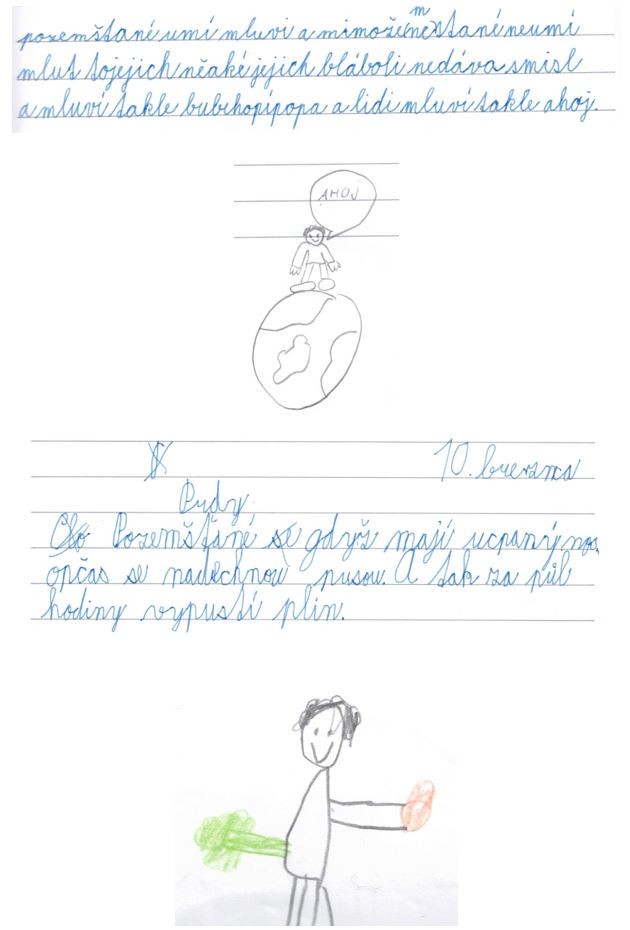 pozemšťané umí mluví a mimozeme͏̌šťané neumí
mluť to jejich něaké jejich bláboli nedáva smisl
a mluví takle bubchopípopa a lidi mluví takle ahoj.
AHOJ
10. března
Prdy
Pozemšťané gdyž mají ucpaný nos
opčas se nadechnou pusou. A tak za půl
hodiny vypustí plin.